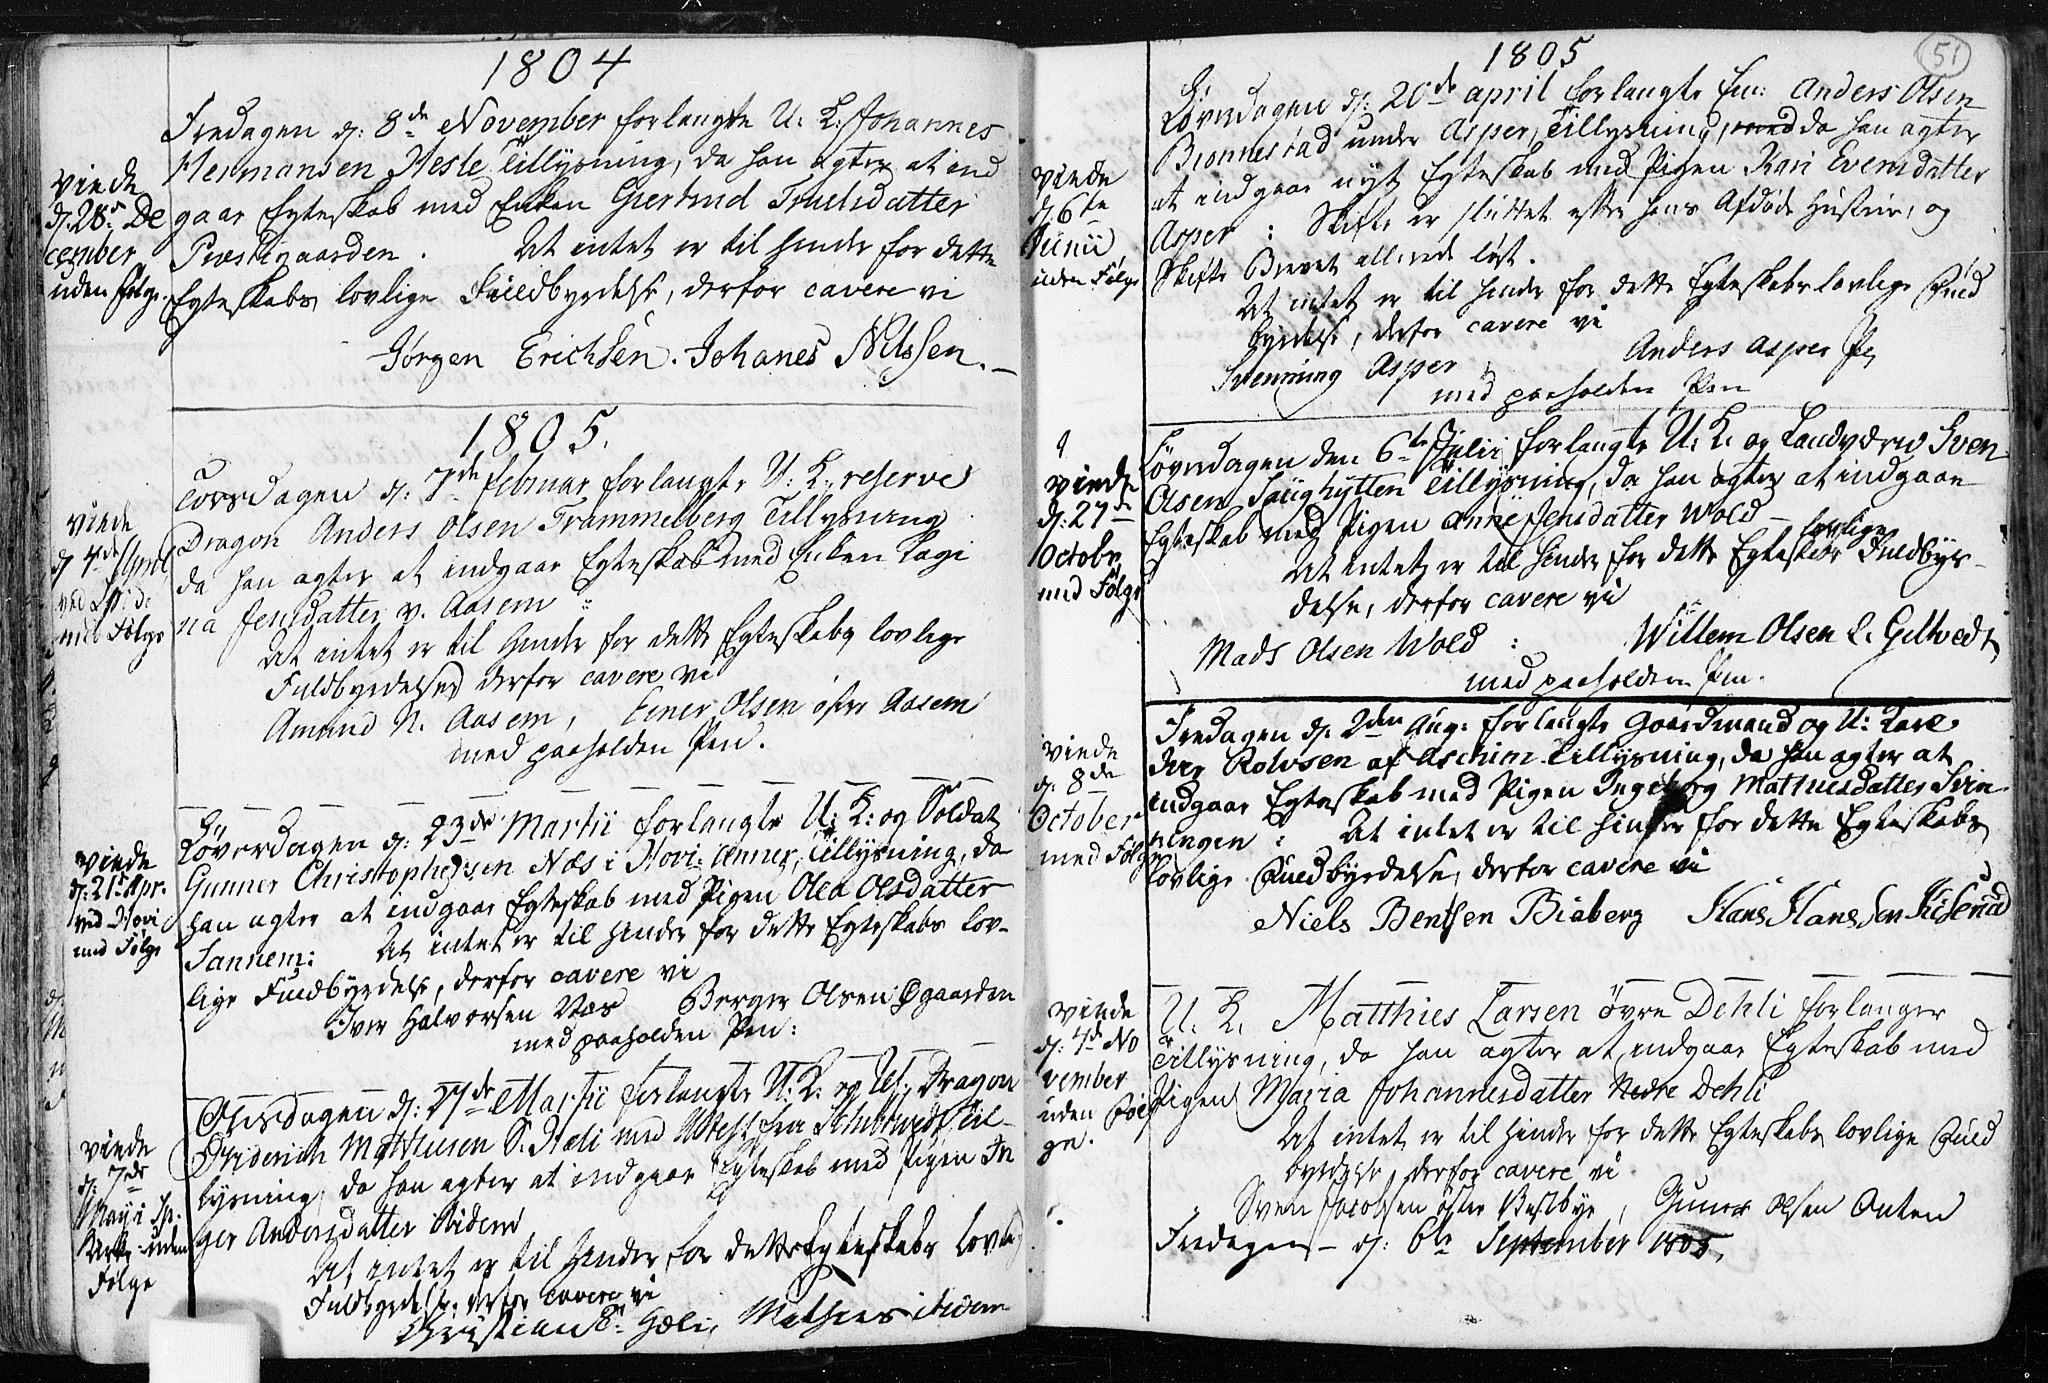 1804
Fredagen d: 8de November forlangte U: K: Johannes
Hermansen Hesle Tillysning, da han agter at ind
gaae Egteskab med Enken Giertrud Truelsdatter
Præstegaarden. At intet er til hinder for dette
Egteskabs lovlige Fuldbyrdelse, derfor cavere vi
Jørgen Erichsen. Johanes Nilssen.
viede
d: 28de De
cember
uden Følge.
1805.
Torsdagen d: 7de februar forlangte U: K: reserve
Dragon Anders Olsen Trammelberg Tillysning
da han agter at indgaae Egteskab med Enken Kagi
na Jensdatter v. Aasem
At intet er til hinder for dette Egteskabs lovlige
Fuldbyrdelse, derfor cavere vi
Amund N. Aasem, Einer Olsen øfre Aasem
med paaholden Pen.
viede
d 4de April
med Følge
Løverdagen d: 23de Martii forlangte U: K: og Soldat
Gunner Christophersen Næs i Hovi: Anner, Tillysning, da
han agter at indgaae Egteskab med Pigen Olea Olsdatter
Sannem: At intet er til hinder for dette Egteskabs lov-
lige Fuldbyrdelse, derfor cavere vi
Iver Halvorsen Næs Berger Olsen Øgaarden
med paaholden Pen:
viede
d: 21de Apr:
ved Hovi
med Følge
Onsdagen d: 27de Martii forlangte U: K: og Dragon
Friderich Mathiesen S. Hæli med Attest fra Til-
lysning, da han agter at indgaae Egteskab med Pigen In
ger Andersdatter ibidem
At intet er til hinder for dette Egteskabs lovlig
Fuldbyrdelse, derfor cavere vi
Christian E: Hæli, Mathies ibidem
viede
d: 7de
May i
Kirke uden
Følge
1805
51
Løverdagen d: 20de april forlangte Em: Anders Olsen
Bronnestad under Asper, Tillysning, med da han agter
at indgaae nyt Egteskab med Pigen Kari Evensdatter
Asper : Skifte er sluttet efter hans Afdøde Hustrue, og
Skifte Brevet allerede løst.
At intet er til hinder for dette Egteskabs lovlige Fuld
byrdelse, derfor cavere vi
Svenning Asper Anders Asper
med paaholden Pen
viede
d: 6te
Junii
uden Følge
Løverdagen den 6te Julii forlangte U: K: og Landværn Sven
Olsen Saughytten Tillysning, da han agter at indgaae
Egteskab med Pigen Anne Jensdatter Wold
At intet er til hinder for dette Egteskabs lovlige Fuldbyr-
delse, derfor cavere vi
Mads Olsen Wold : Willem Olsen L. Giltvedt
med paaholden Pen.
viede
d: 27de
Octobr
med Følge
Fredagen d. 2den Aug: forlangte Gaardmand og U: Karl
Iver Rolvsen af Aschim Tillysning, da han agter at
indgaae Egteskab med Pigen Ingeborg Mathiesdatter Svin
ningen : At intet er til hinder for dette Egteskabs
lovlige Fuldbyrdelse, derfor cavere vi
Niels Bentsen Biaberg Hans Hanssen Kiserud
viede
d: 8de
October
med Følge
U. K. Matthies Larsen øvre Dehli forlanger
Tillysning, da han agter at indgaae Egteskab med
Pigen Maria Johannesdatter Nedre Dehli
At intet er til hinder for dette Egteskabs lovlige Fuld
byrdelse, derfor cavere vi
Sven Jacobsen øster Vestbye, Gunner Olsen Onten
Fredagen d: 6te September 1805.
viede
d: 7de No
vember
uden Føl
ge.